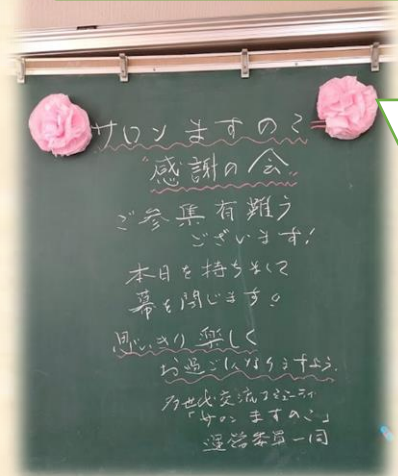 サロンますのこ
"感謝の会"
ご参集有難う
ございます!
本日を持ちまして
幕を閉じます。
思いきり楽しく
お過ごしになりますよう。
多世代交流コミュニティ
「サロン ますのこ」
運営委員一同